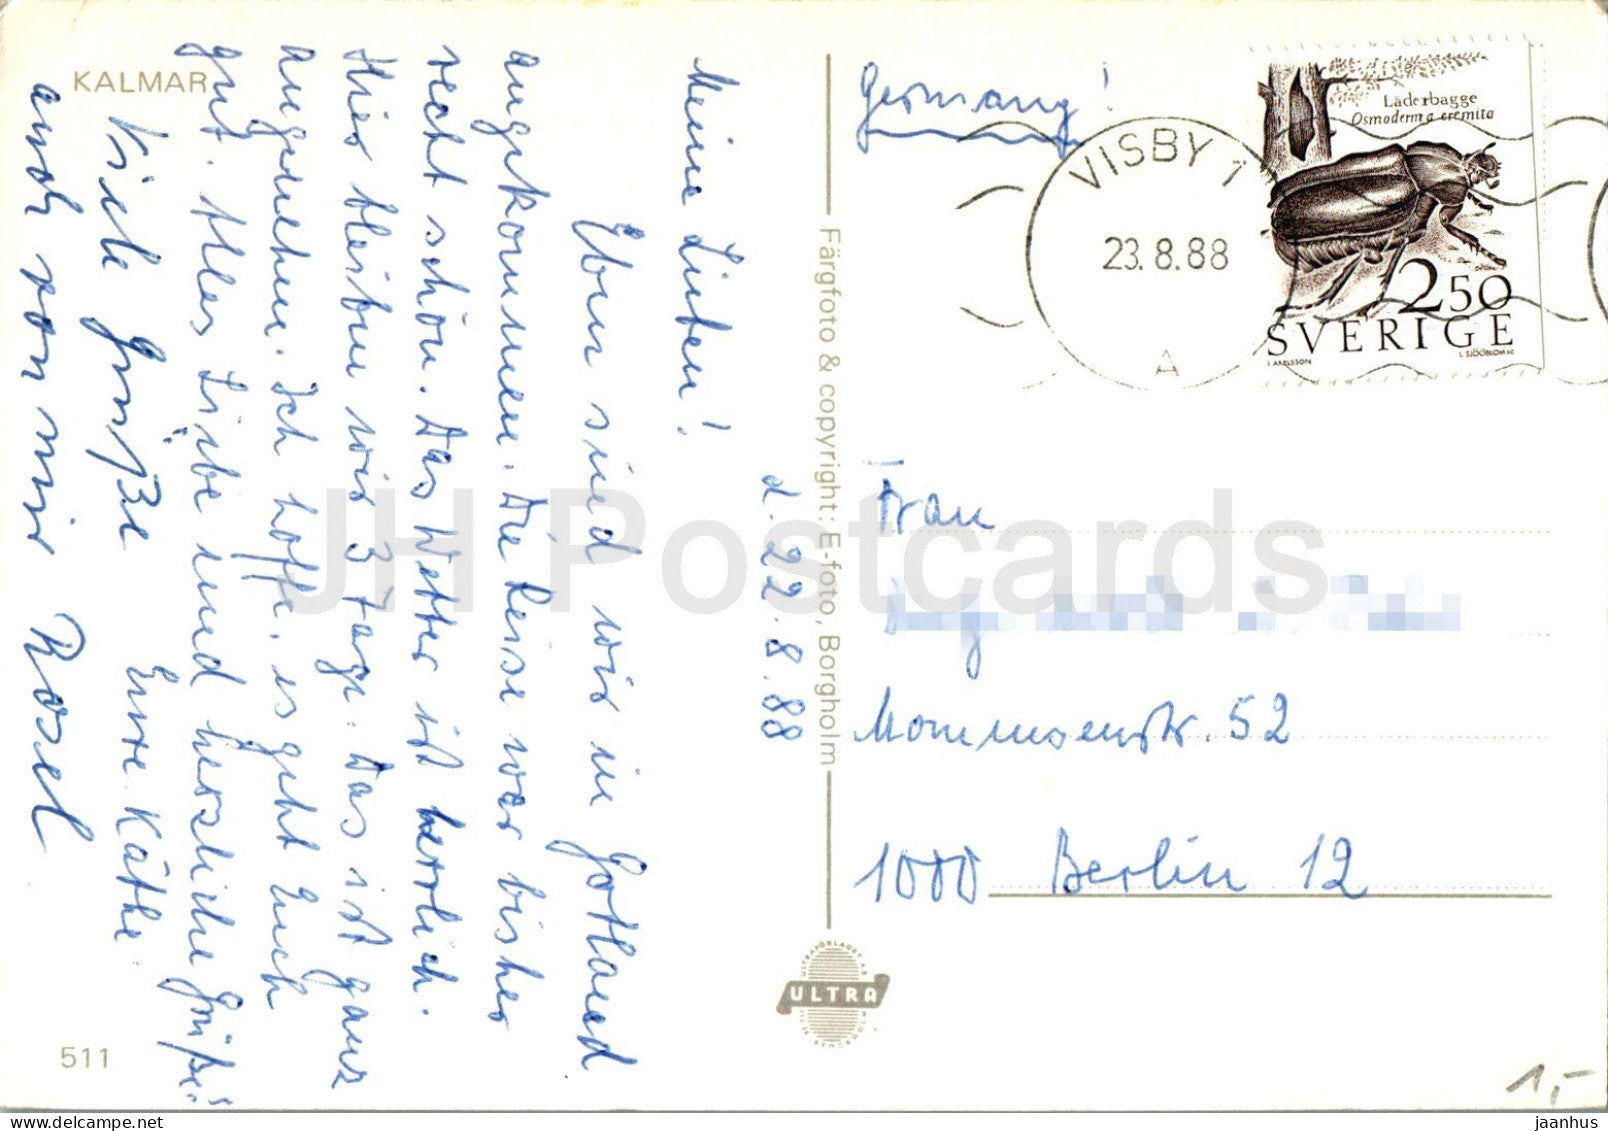 KALMAR
d. 22.8.88
Meine Lieben!
Eben sind wir in Gotland
angekommen. Die Reise war bisher
recht schön. Das Wetter ist herrlich.
Hier bleiben wir 3 Tage. Das ist ganz
angenehm. Ich hoffe, es geht Euch
gut. Alles Liebe und herzliche Grüße
Eure Käthe
Viele Grüße
auch von mir Rosel
511
Färgfoto & copyright: E-foto, Borgholm
ULTRAFÖRLAGET AB
ULTRA
STOCKHOLM
Germany!
VISBY 1
23.8.88
A
Läderbagge
Osmoderma eremita
2.50
SVERIGE
L. SJÖÖBLOM SC
Frau
Mommsenstr. 52
1000 Berlin 12
1,-
JH Postcards
jaanhus
www.delcampe.net